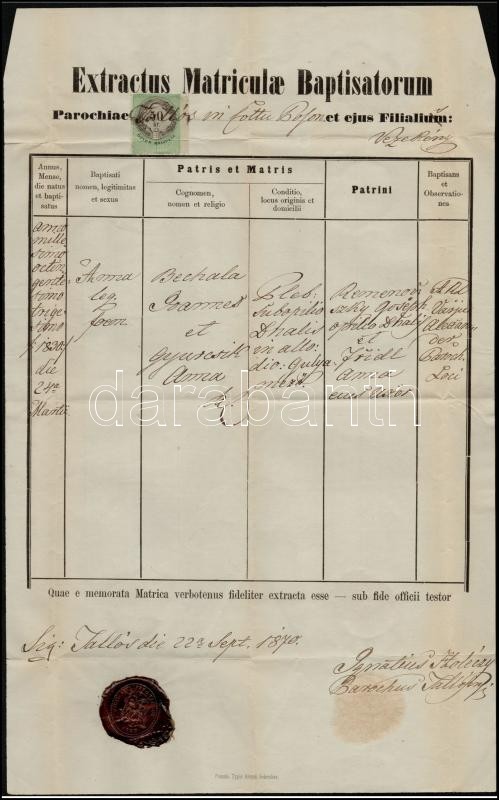 Extractus Matriculæ Baptisatorum
Parochiae Tallós in Cottu Poson et ejus Filialium:
Vezekény
50
Annus, Mense, die natus et baptisatus
Baptisati nomen, legitimitas et sexus
Patris et Matris
Cognomen, nomen et religio
Conditio, locus originis et domicilii
Patrini
Baptisans et Observationes
anno
mille
simo
octin
gente
simo
trige
simo
1830
die
24a
Martii
Anna
leg.
foem
Bechala
Joannes
et
Gyurcsik
Anna
Pleb:
Subopilio
Dhalis
in allo
dio. Gulya
Remenov
szky Joseph
opilio Dhalis
et
Fridl
Anna
ejus Uxor
Alexan
der
Paroch.
Loci
darabanth
Quae e memorata Matrica verbotenus fideliter extracta esse — sub fide officii testor
Sig: Tallós die 22a Sept. 1870.
Ignatius
Parochus Tallós